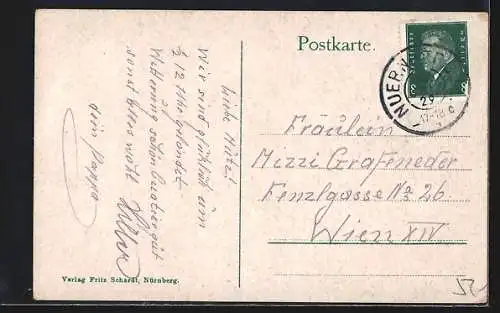 Postkarte.
DEUTSCHES REICH
8 8
NUER
29
17-18
Liebe Mitzi!
Wir sind glücklich um
½ 12 Uhr gelandet.
Wetter schön Quartier gut
sonst alles wohl
dein Pappa
Fräulein
Mizzi Grafeneder
Fenzlgasse No 26
Wien XIV
Verlag Fritz Schardt, Nürnberg.